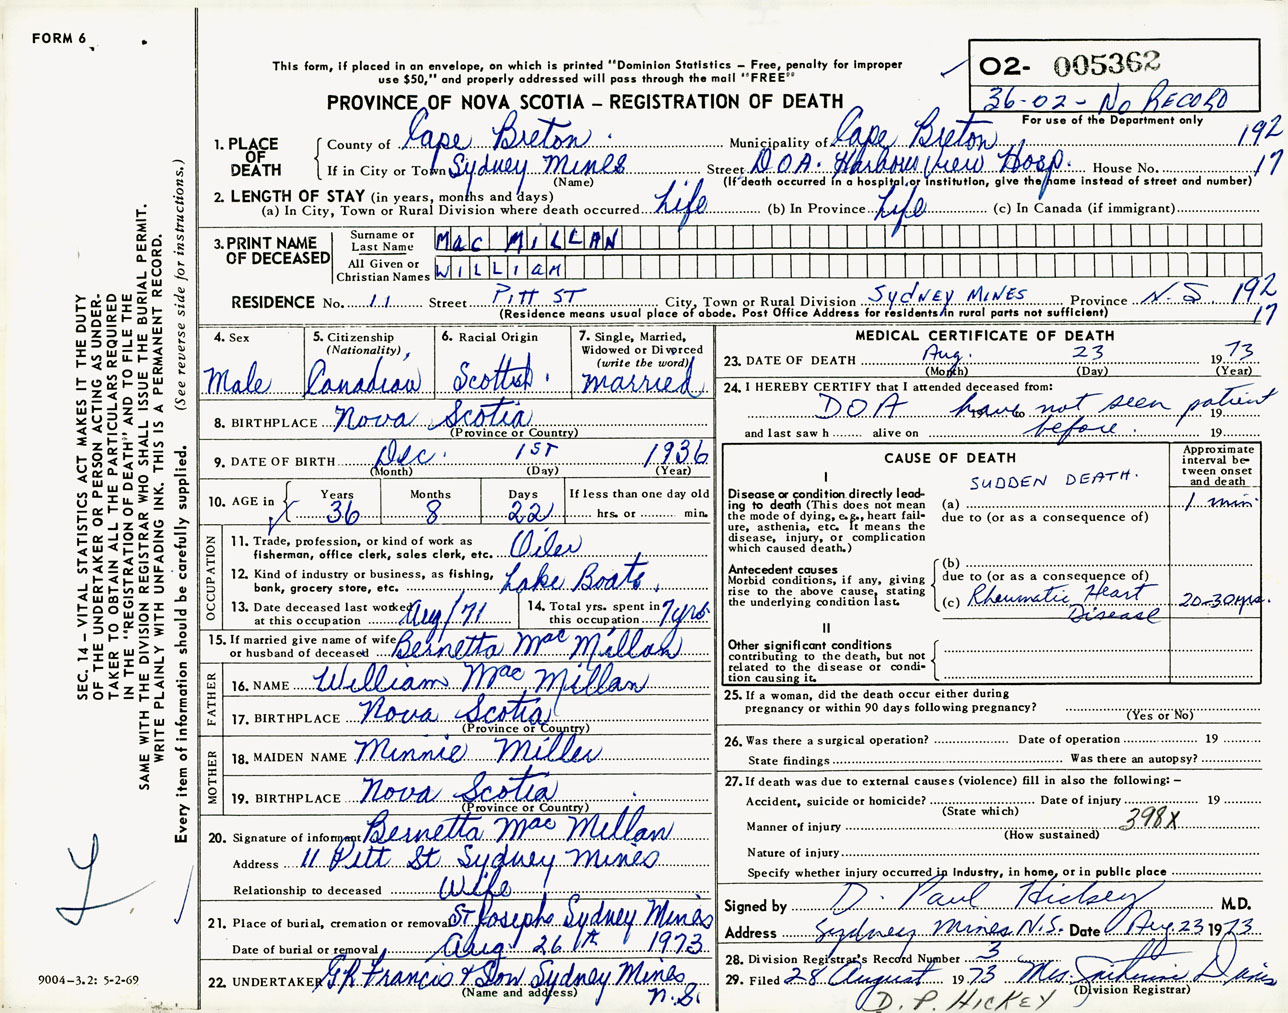 FORM 6
This form, if placed in an envelope, on which is printed "Dominion Statistics – Free, penalty for improper
use $50," and properly addressed will pass through the mail "FREE"
PROVINCE OF NOVA SCOTIA – REGISTRATION OF DEATH
02- 005362
36-02-No RECORD
For use of the Department only
1. PLACE OF DEATH
County of Cape Breton Municipality of Cape Breton 192
If in City or Town Sydney Mines (Name) Street D.O.A. Harbour View Hosp. House No. 17
(If death occurred in a hospital, or institution, give the name instead of street and number)
2. LENGTH OF STAY (in years, months and days)
(a) In City, Town or Rural Division where death occurred Life (b) In Province Life (c) In Canada (if immigrant)
3. PRINT NAME OF DECEASED
Surname or Last Name MacMILLAN
All Given or Christian Names WILLIAM
RESIDENCE No. 11 Street PITT ST City, Town or Rural Division SYDNEY MINES Province N.S. 192
17
(Residence means usual place of abode. Post Office Address for residents in rural parts not sufficient)
4. Sex
Male
5. Citizenship (Nationality)
Canadian
6. Racial Origin
Scottish
7. Single, Married, Widowed or Divorced (write the word)
Married
8. BIRTHPLACE Nova Scotia
(Province or Country)
9. DATE OF BIRTH Dec. 1ST 1936
(Month) (Day) (Year)
10. AGE in Years Months Days If less than one day old
36 8 22 hrs. or min.
OCCUPATION
11. Trade, profession, or kind of work as
fisherman, office clerk, sales clerk, etc. Oiler
12. Kind of industry or business, as fishing,
bank, grocery store, etc. Lake Boats
13. Date deceased last worked
at this occupation Aug/71
14. Total yrs. spent in
this occupation 7 yrs.
15. If married give name of wife
or husband of deceased Bernetta MacMillan
FATHER
16. NAME William MacMillan
17. BIRTHPLACE Nova Scotia
(Province or Country)
MOTHER
18. MAIDEN NAME Minnie Miller
19. BIRTHPLACE Nova Scotia
(Province or Country)
20. Signature of informant Bernetta MacMillan
Address 11 Pitt St Sydney Mines
Relationship to deceased Wife
21. Place of burial, cremation or removal St Josephs Sydney Mines
Date of burial or removal Aug 26th 1973
22. UNDERTAKER Francis & Son Sydney Mines
(Name and address) N.S.
MEDICAL CERTIFICATE OF DEATH
23. DATE OF DEATH Aug. 23 1973
(Month) (Day) (Year)
24. I HEREBY CERTIFY that I attended deceased from:
DOA have not seen patient 19
and last saw h alive on before. 19
CAUSE OF DEATH
Approximate interval between onset and death
I
Disease or condition directly leading to death (This does not
mean the mode of dying, e.g., heart failure, asthenia, etc. It means the
disease, injury, or complication
which caused death.)
SUDDEN DEATH.
(a) 1 min
due to (or as a consequence of)
Antecedent causes
Morbid conditions, if any, giving
rise to the above cause, stating
the underlying condition last.
(b)
due to (or as a consequence of)
(c) Rheumatic Heart Disease 20-30 yrs.
II
Other significant conditions
contributing to the death, but not
related to the disease or condition causing it.
25. If a woman, did the death occur either during
pregnancy or within 90 days following pregnancy?
(Yes or No)
26. Was there a surgical operation? Date of operation 19
State findings Was there an autopsy?
27. If death was due to external causes (violence) fill in also the following: –
Accident, suicide or homicide? Date of injury 19
(State which)
Manner of injury 398X
(How sustained)
Nature of injury
Specify whether injury occurred in Industry, in home, or in public place
Signed by D. Paul Hickey M.D.
Address Sydney Mines N.S. Date Aug 23 1973
28. Division Registrar's Record Number 3
29. Filed 28 August 1973 Mrs.
(Division Registrar)
D. P. HICKEY
SEC. 14 – VITAL STATISTICS ACT MAKES IT THE DUTY
OF THE UNDERTAKER OR PERSON ACTING AS UNDERTAKER TO OBTAIN ALL THE PARTICULARS REQUIRED
IN THE "REGISTRATION OF DEATH" AND TO FILE THE
SAME WITH THE DIVISION REGISTRAR WHO SHALL ISSUE THE BURIAL PERMIT.
WRITE PLAINLY WITH UNFADING INK. THIS IS A PERMANENT RECORD.
Every item of information should be carefully supplied. (See reverse side for instructions.)
9004-3.2: 5-2-69